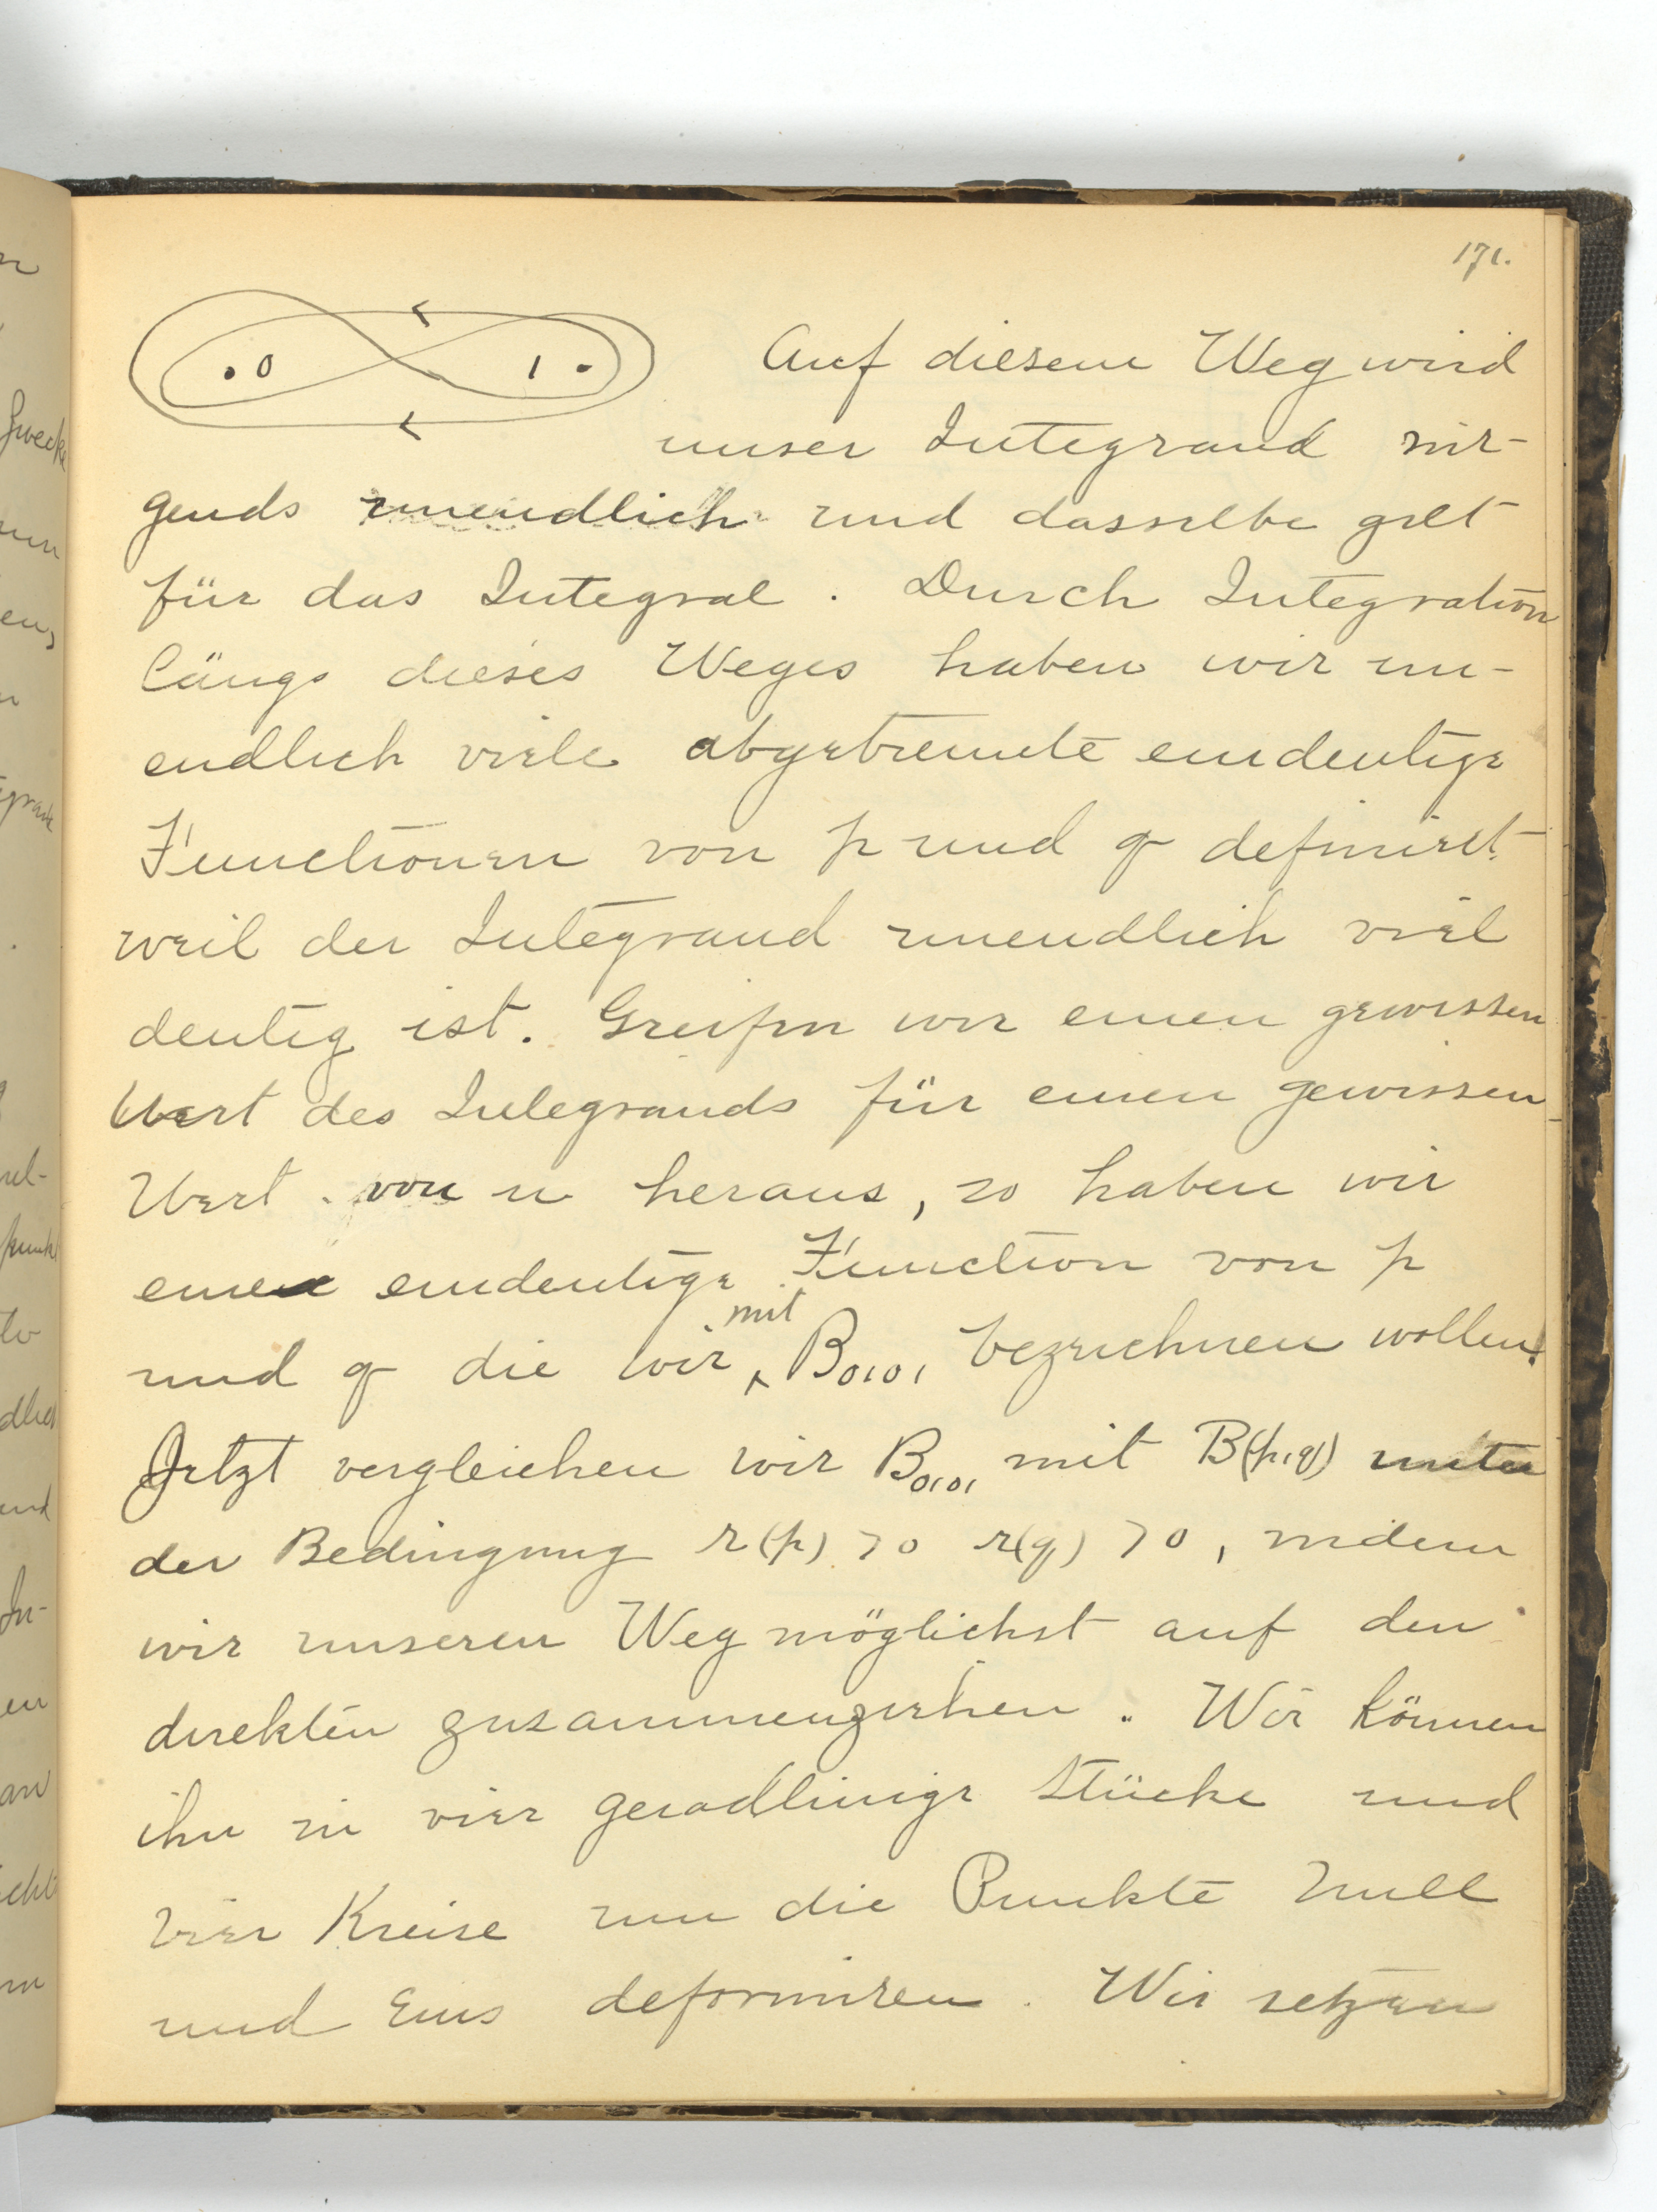 171.
.0 1.
Auf diesem Weg wird
unser Integrand nir-
gends unendlich und dasselbe gilt
für das Integral. Durch Integration
längs dieses Weges haben wir un-
endlich viele abgetrennte eindeutige
Functionen von p und q definiert
weil der Integrand unendlich viel
deutig ist. Greifen wir einen gewissen
Wert des Integrands für einen gewissen
Wert von u heraus, so haben wir
eine eindeutige Function von p
und q die wir mit B0101 bezeichnen wollen.
Jetzt vergleichen wir B0101 mit B(p,q) unter
der Bedingung r(p) > 0 r(q) > 0, indem
wir unseren Weg möglichst auf den
direkten zusammenziehen. Wir können
ihn in vier geradlinige Stücke und
vier Kreise um die Punkte Null
und Eins deformiren. Wir setzen